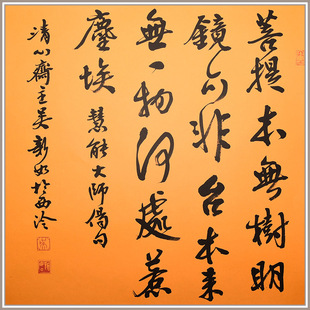 菩提本無樹明
鏡亦非台本来
無一物何處惹
塵埃 慧能大師偈句
清心齋主吴新如於西泠